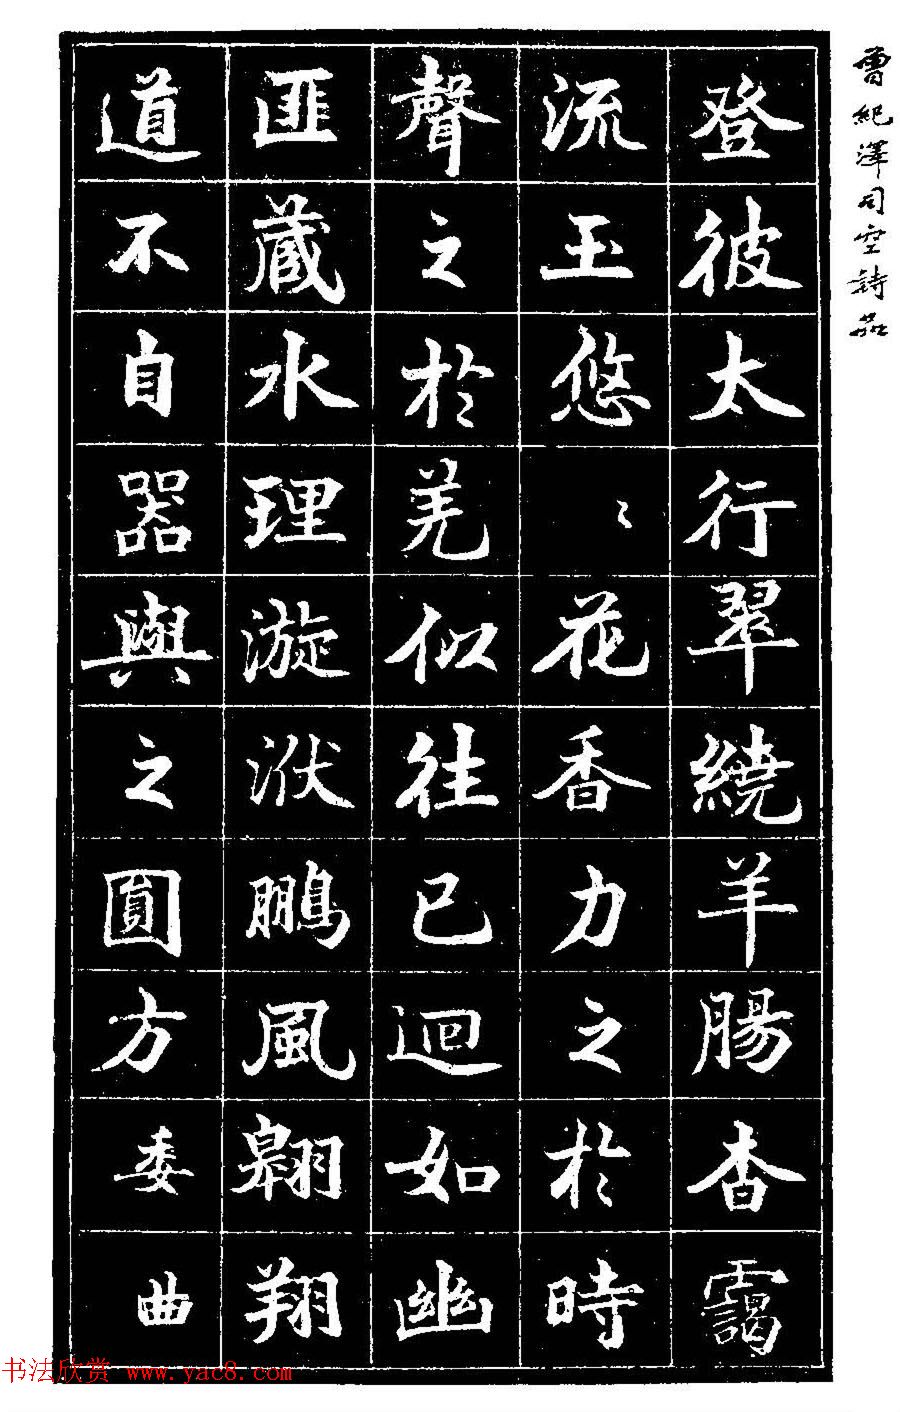 曾紀澤司空詩品
登彼太行翠繞羊腸杳靄
流玉悠〻花香力之於時
聲之於羌似往已迴如幽
匪藏水理漩洑鵬風翱翔
道不自器與之圓方委曲
书法欣赏 www.yac8.com